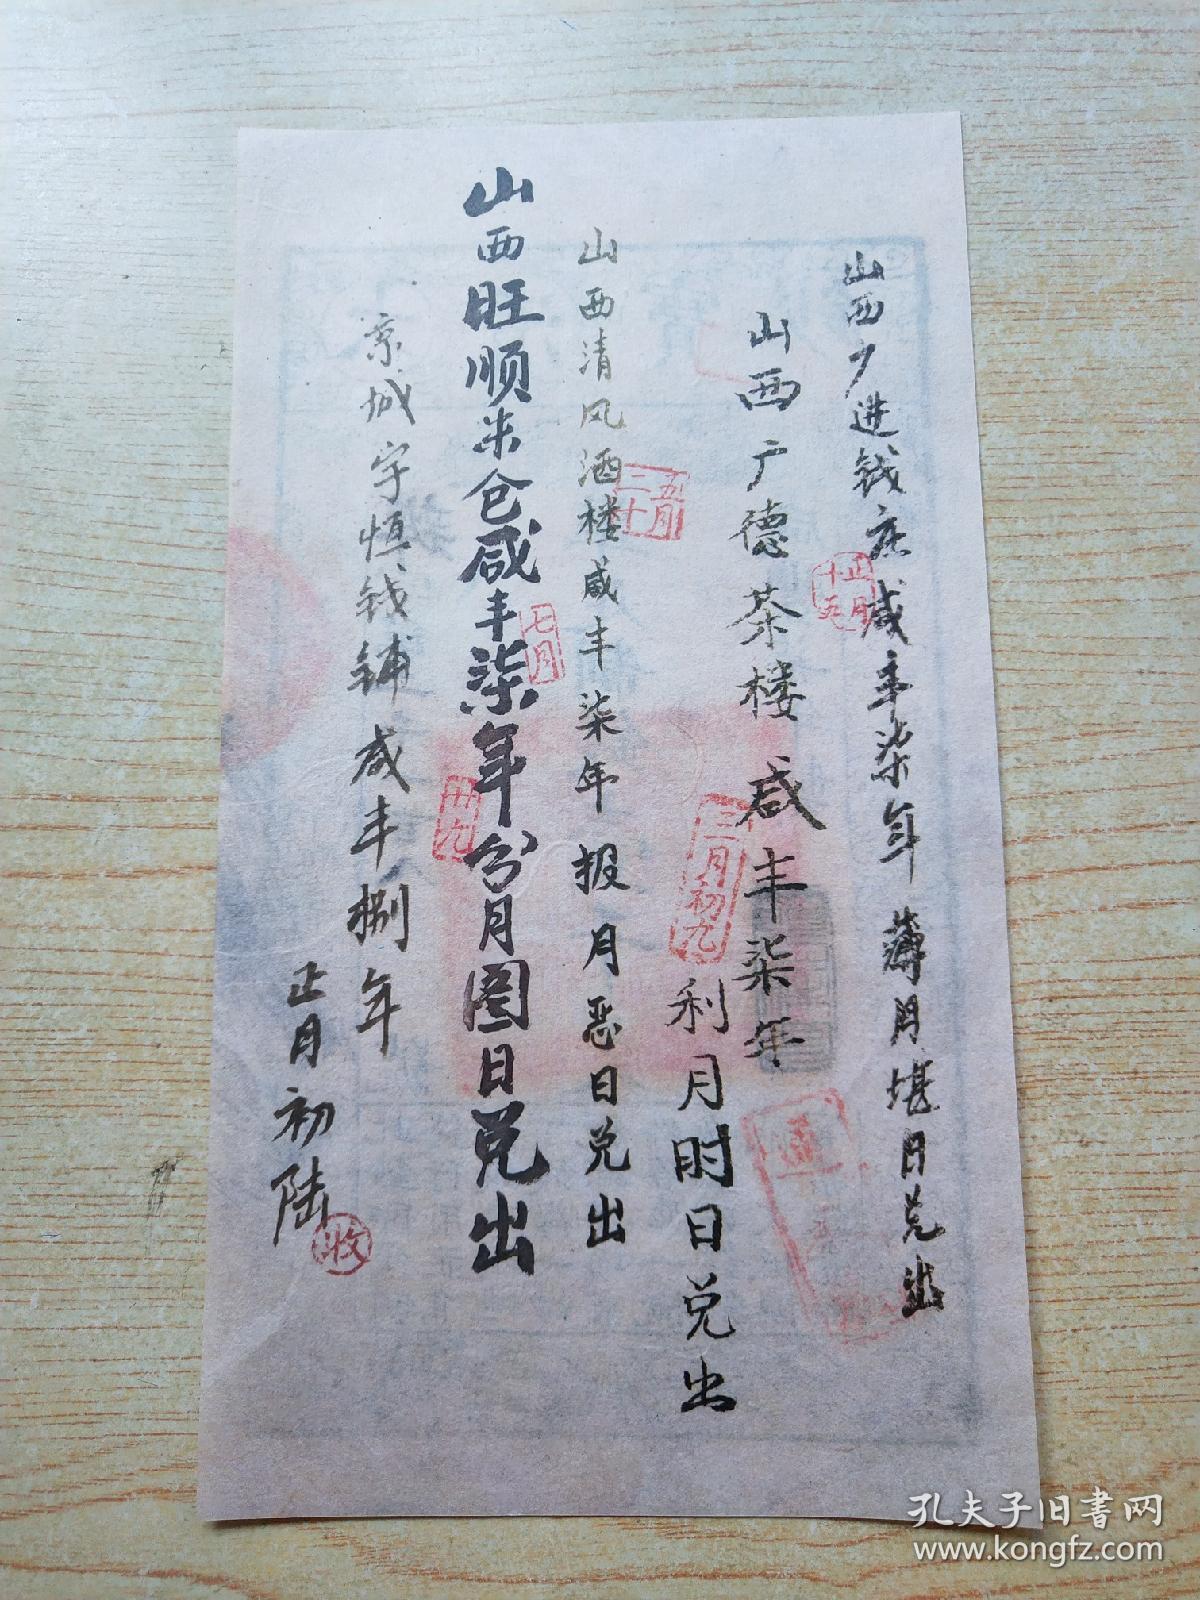 山西广进钱庄咸丰柒年薄月堪日兑出
正月
十五
山西广德茶楼咸丰柒年
三月初九
利月时日兑出
山西清风酒楼咸丰柒年报月恶日兑出
五月
二十
山西旺顺米仓咸丰柒年份月图日兑出
七月
廿九
京城宇恒钱铺咸丰捌年
正月初陆
收
孔夫子旧书网
www.kongfz.com